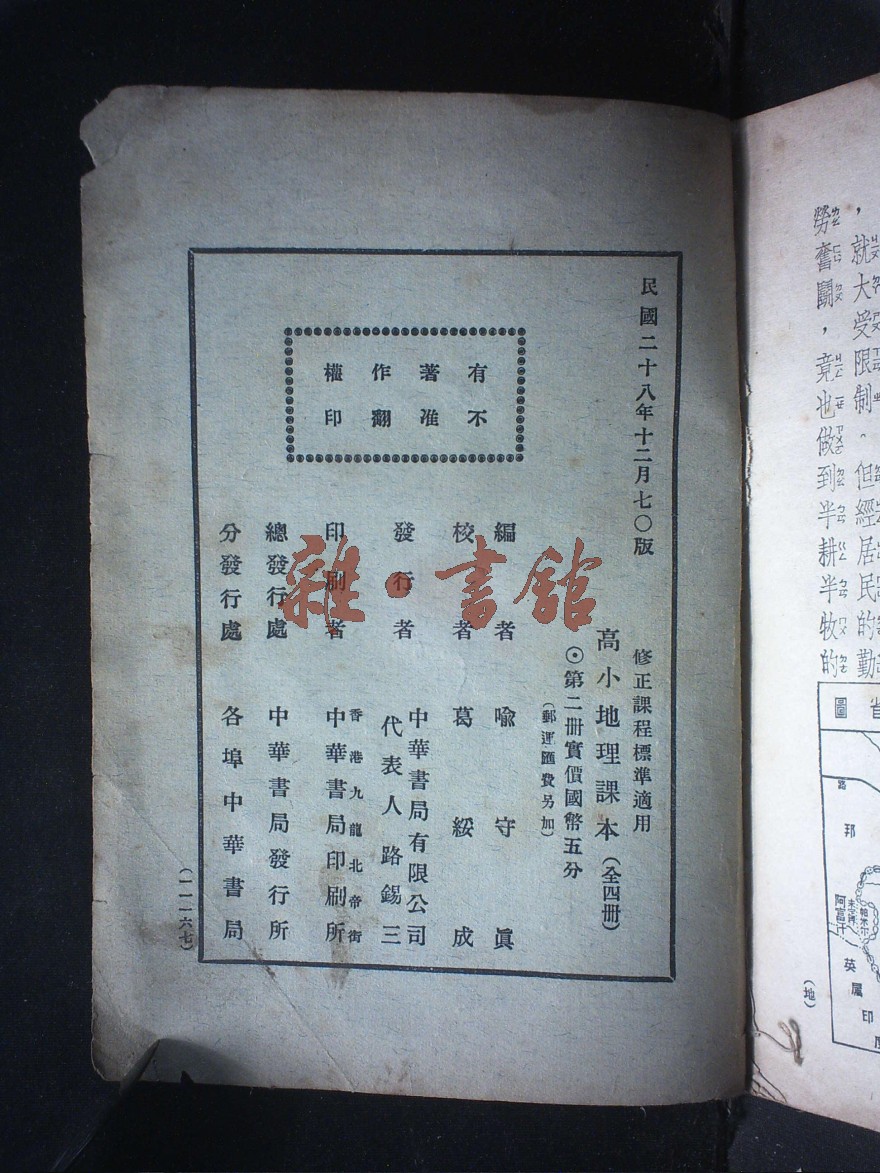 ，就大受限制。但經居民的勤
勞奮鬭，竟也做到半耕半牧的
省圖
邦
阿富汗
英屬印度
（地）
民國二十八年十二月七〇版
修正課程標準適用
高小地理課本（全四册）
⊙第二册實價國幣五分
（郵運匯費另加）
有著作權
不准翻印
編者 喩守眞
校者 葛綏成
發行者 中華書局有限公司
代表人路錫三
印刷者 香港九龍北帝街
中華書局印刷所
總發行處 中華書局發行所
分發行處 各埠中華書局
（一一一六七）
雜·書館